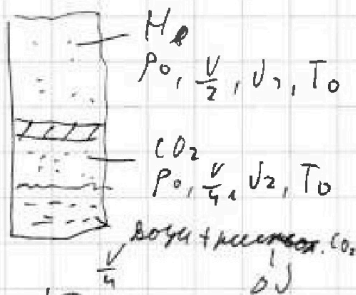 He
P₀, V/2, ν₁, T₀
CO₂
P₀, V/4, ν₂, T₀
V/4 воды + CO₂
Δν